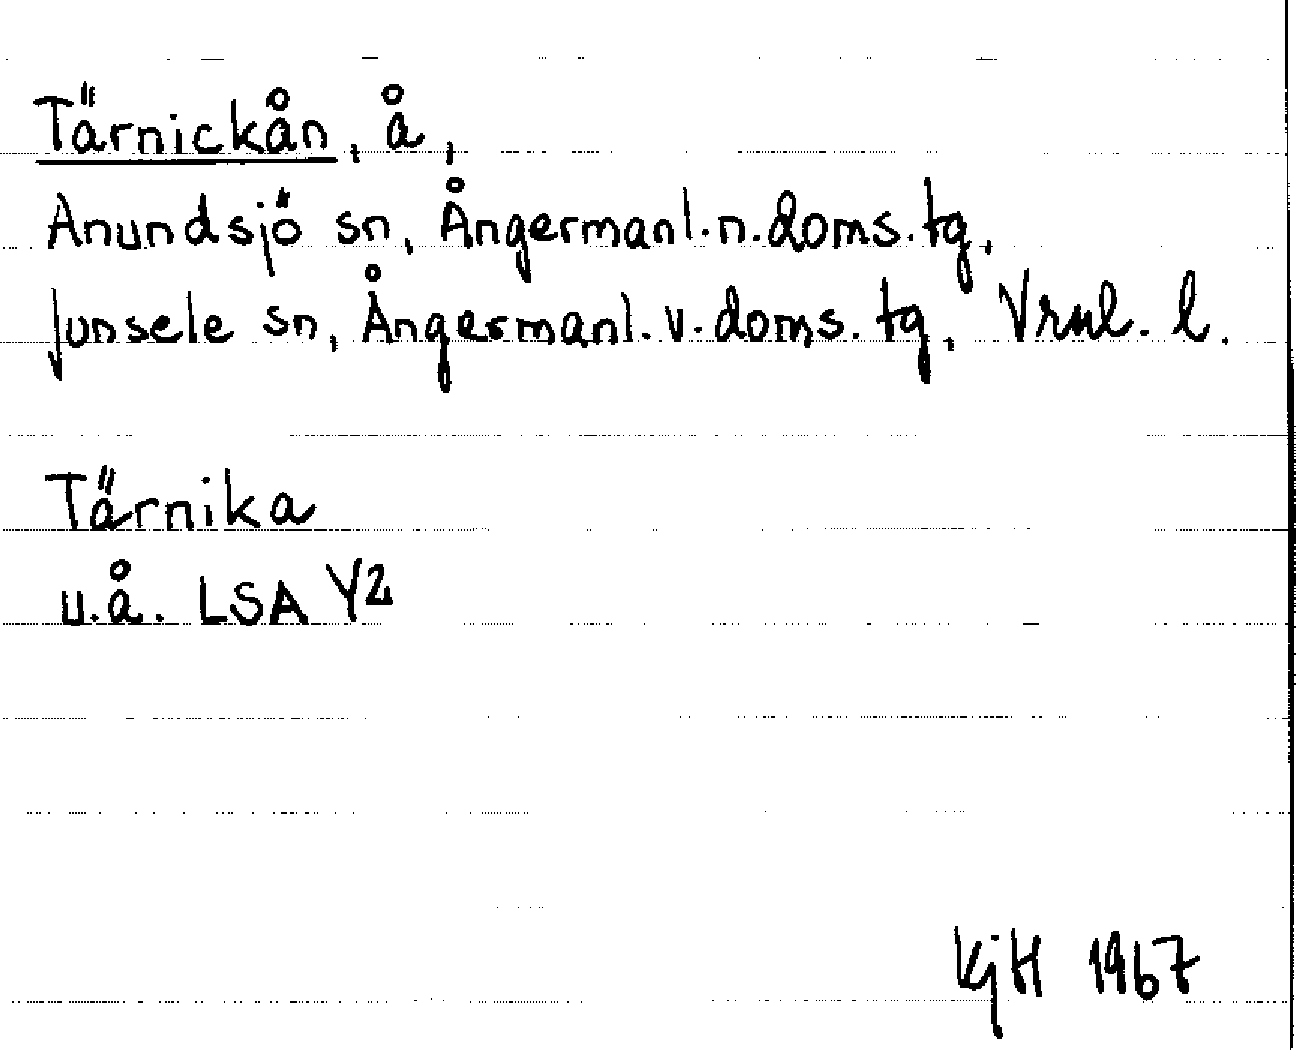 Tärnickån, å,
Anundsjö sn, Ångermanl.n.doms.tg,
Junsele sn, Ångermanl.v.doms.tg, Vrnl. l.
Tärnika
u.å. LSA Y2
KjH 1967